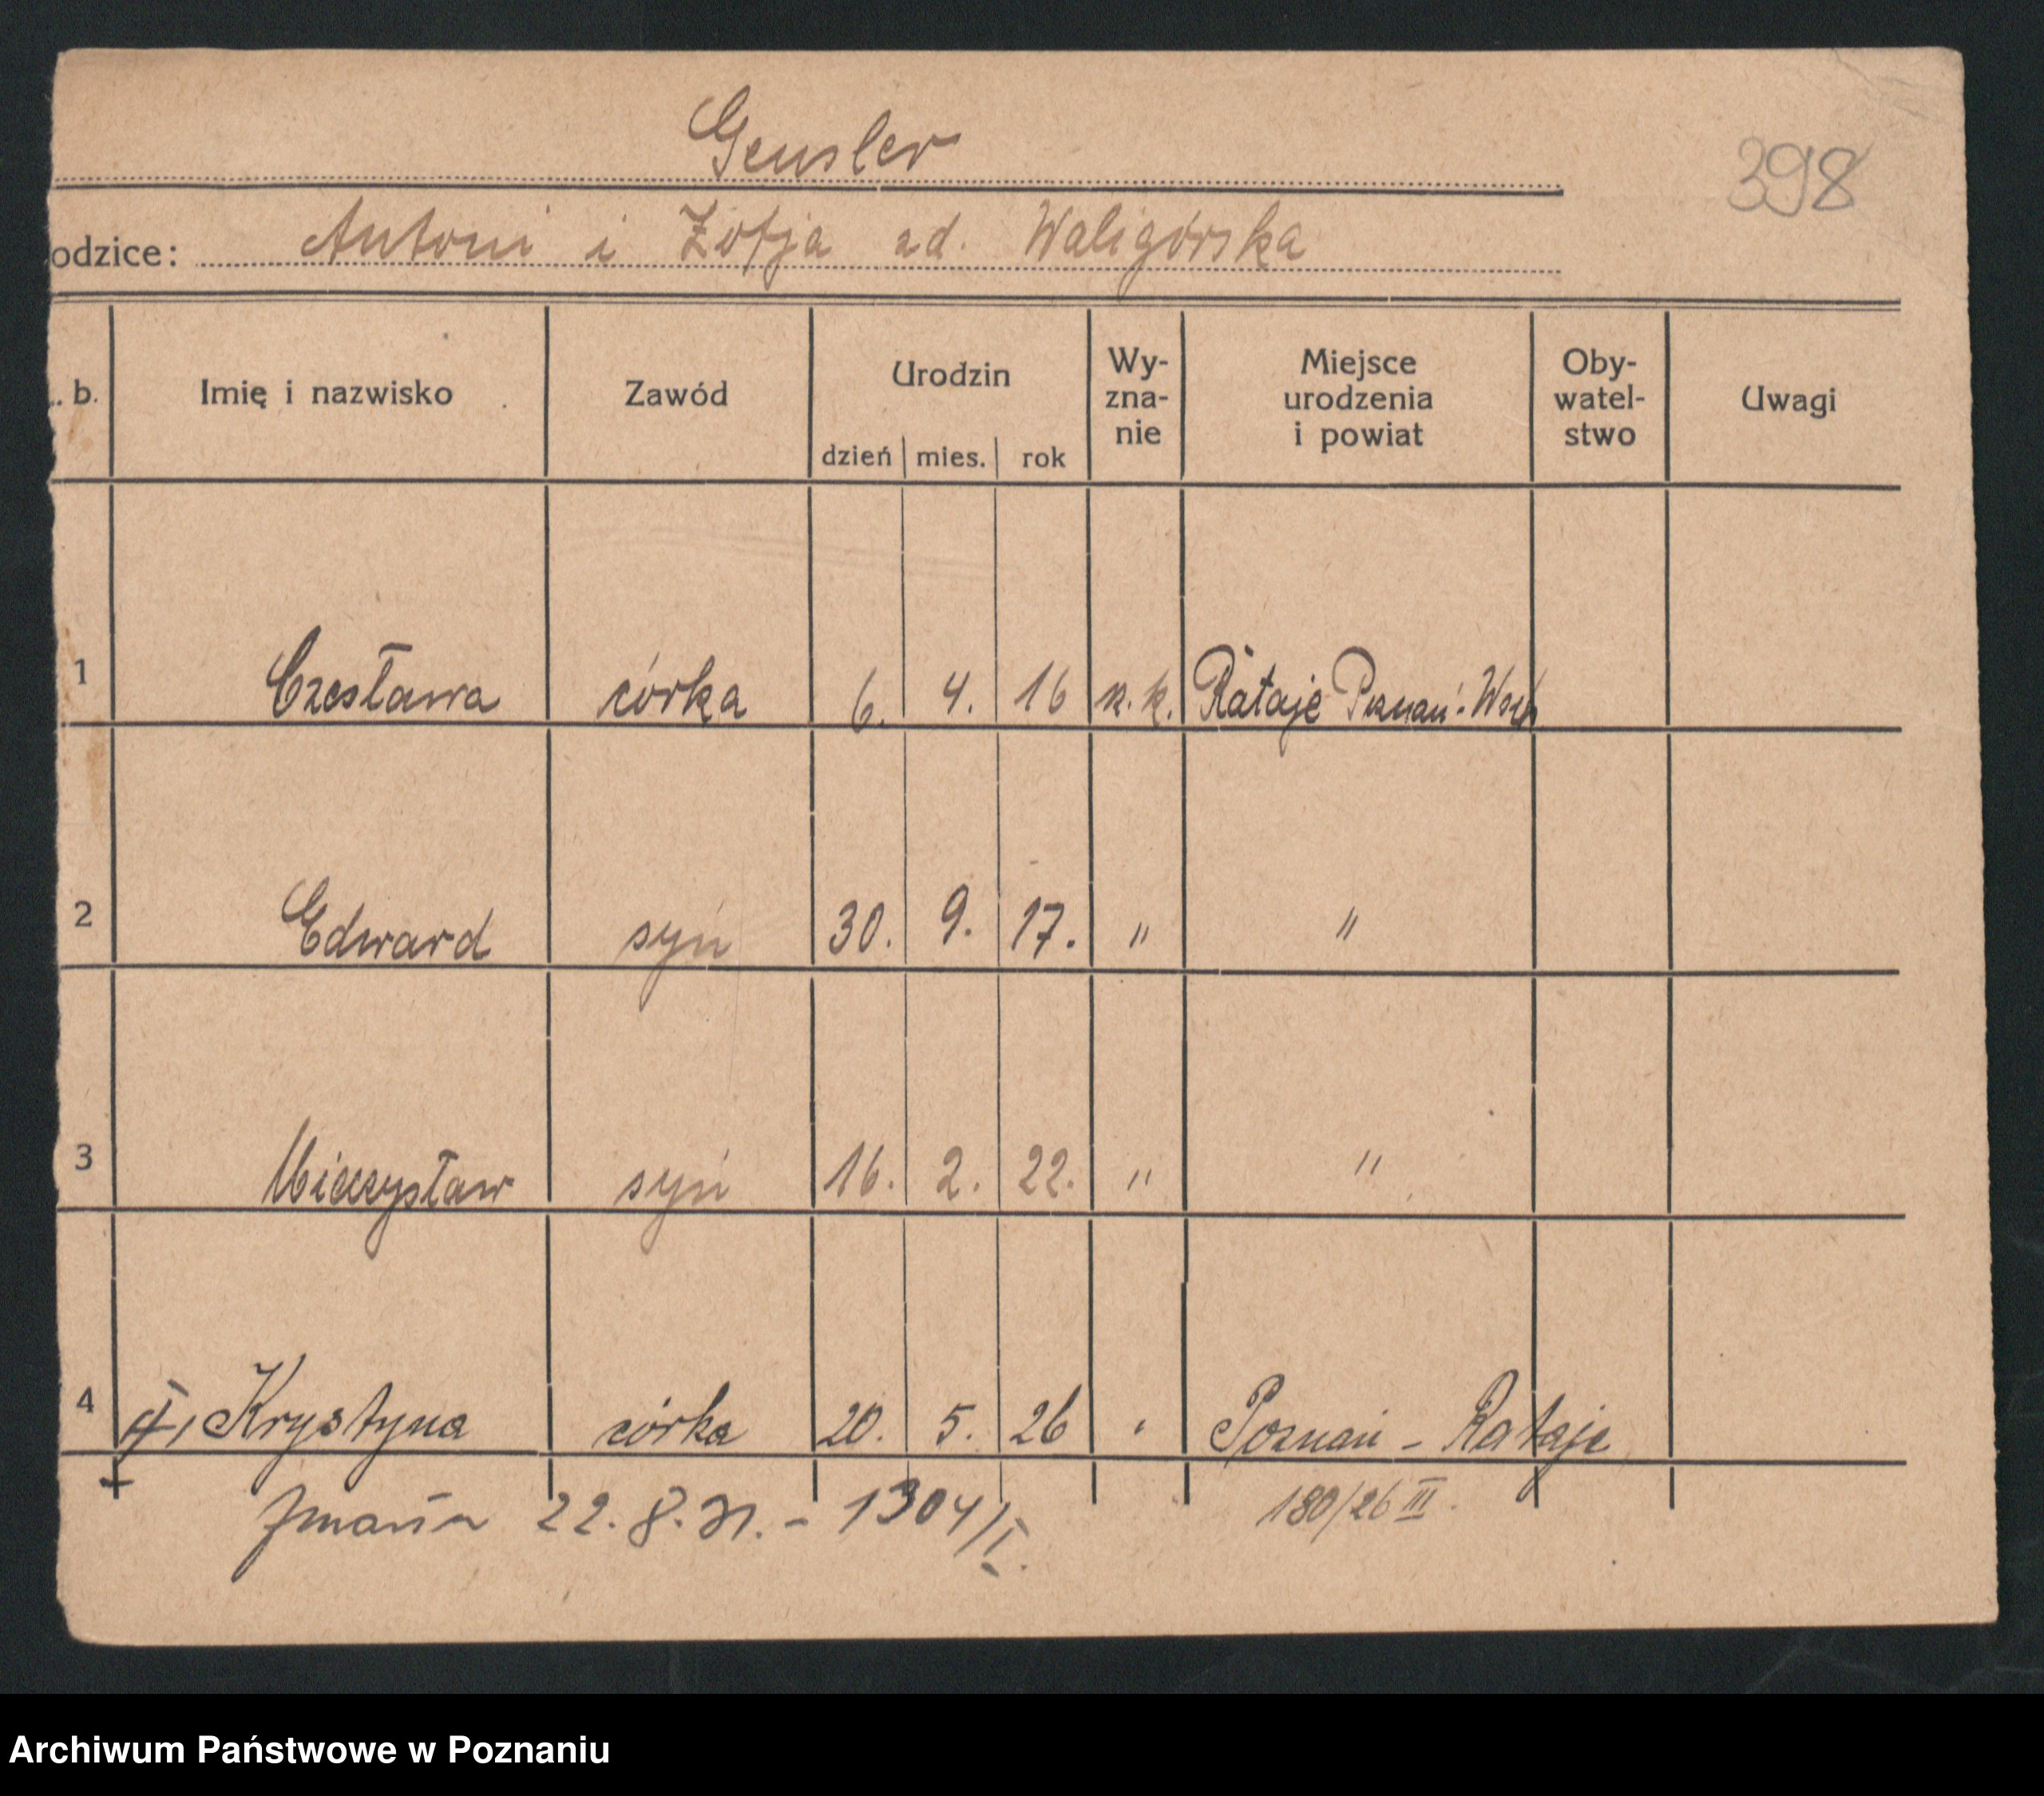 Gensler
398
odzice: Antoni i Zofja zd. Waligórska
. b. Imię i nazwisko Zawód Urodzin dzień mies. rok Wy-zna-nie Miejsce urodzenia i powiat Oby-watel-stwo Uwagi
1 Czesława córka 6. 4. 16 r. k. Rataje Poznań-Wsch
2 Edward syn 30. 9. 17. " "
3 Mieczysław syn 16. 2. 22. " "
4 Krystyna córka 20. 5. 26 " Poznań - Rataje
zmarła 22. 8. 31. - 1304/I.
180/26 III.
Archiwum Państwowe w Poznaniu